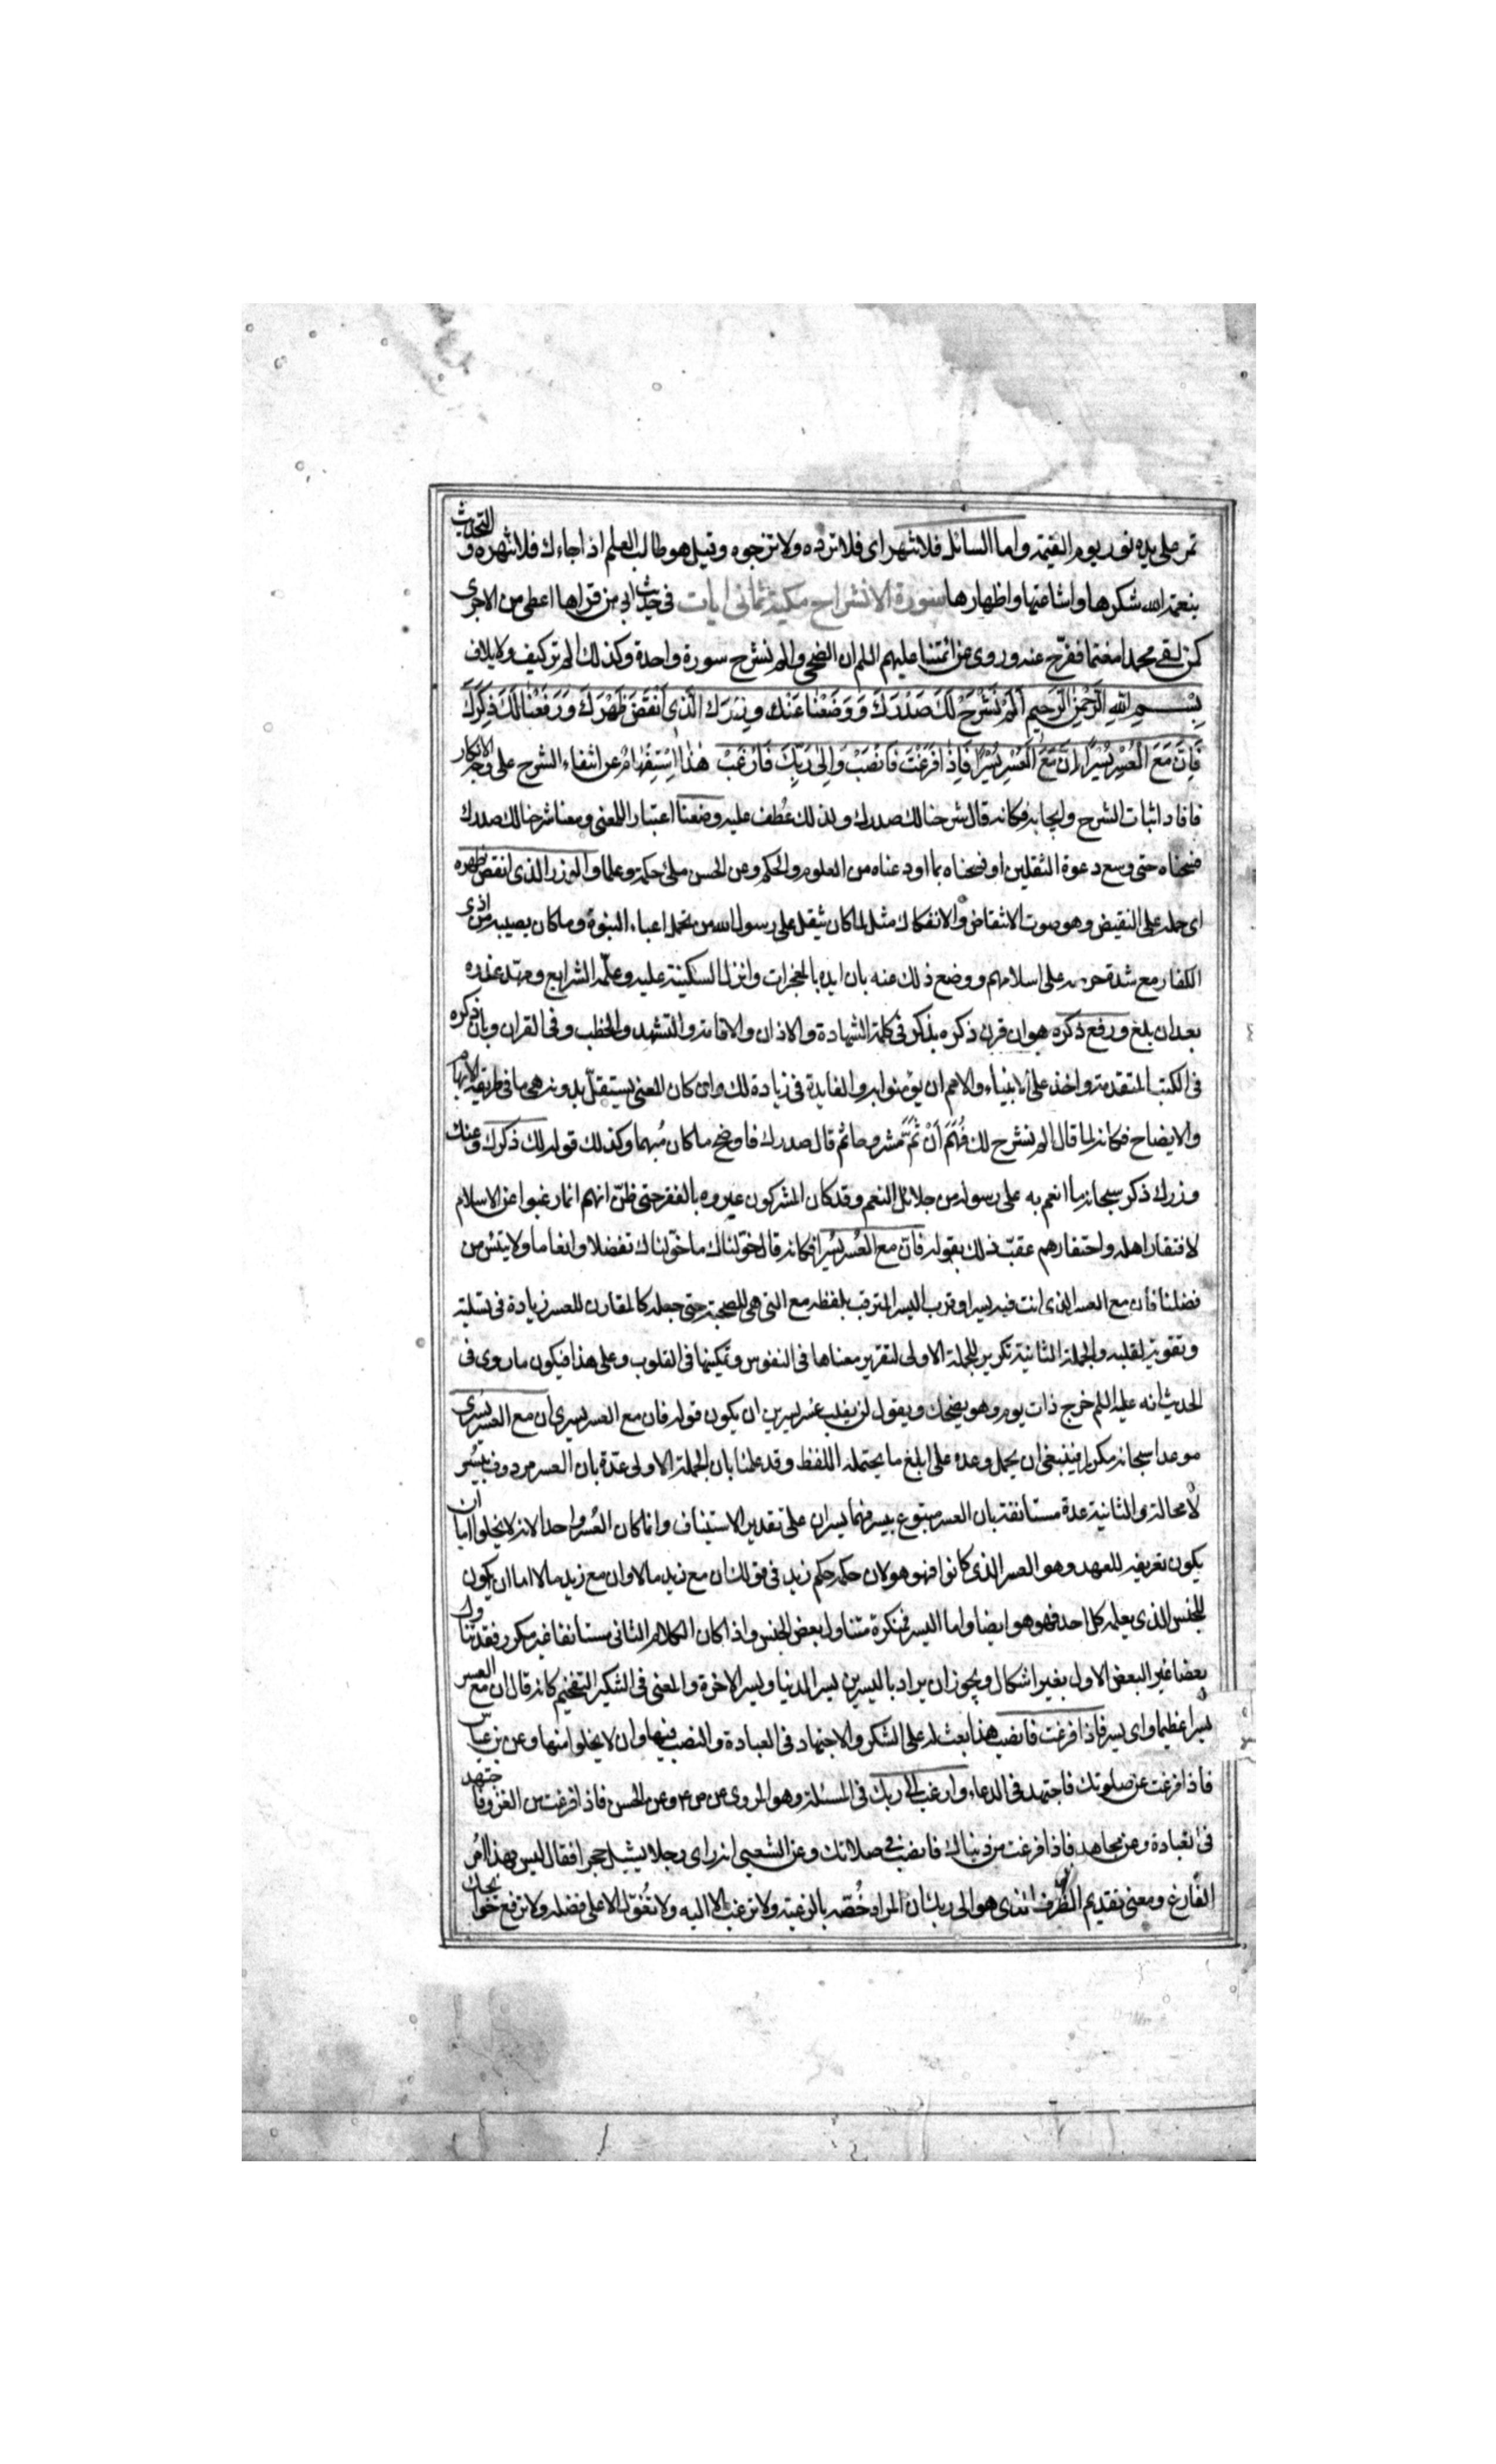 تمر على يده نور يوم القيمة واما السائل فلا تنهر اى فلا ترده ولا تزجره وقيل هو طالب العلم اذا جاءك فلا تنهره والتحديث
بنعمة الله شكرها واشاعتها واظهارها سورة الانشراح مكية ثمانى ايات فى حديث ابى من قراها اعطى من الاجرى
كمن لقى محمدا مغتما ففرج عنه وروى عن ائمتنا عليهم السلم ان الضحى والم نشرح سورة واحدة وكذلك الم تر كيف ولايلاف
بِسْمِ اللهِ الرَّحْمٰنِ الرَّحيمِ اَلَمْ نَشْرَحْ لَكَ صَدْرَكَ وَوَضَعْنا عَنْكَ وِزْرَكَ الَّذى اَنْقَضَ ظَهْرَكَ وَرَفَعْنا لَكَ ذِكْرَكَ
فَاِنَّ مَعَ الْعُسْرِ يُسْرًا اِنَّ مَعَ الْعُسْرِ يُسْرًا فَاِذا فَرَغْتَ فَانْصَبْ وَاِلى رَبِّكَ فَارْغَبْ هذا استفهام عن انتفاء الشرح على وجه الانكار
فافاد اثبات الشرح وايجابه فكانه قال شرحنا لك صدرك ولذلك عُطف عليه وضعنا اعتبارا للمعنى ومعنا شرحنا لك صدرك
فسحناه حتى وسع دعوة الثقلين او فسحناه بما اودعناه من العلوم والحكم وعن الحسن ملئ حكمة وعلما والوزر الذى انقض ظهره
اى حمله على النقيض وهو صوت الانتقاض والانفكاك مثل لما كان يثقل على رسول الله من تحمل اعباء النبوة وما كان يصيبه من اذى
الكفار مع شدة حرصه على اسلامهم ووضع ذلك عنه بان ايده بالمعجزات وانزل السكينة عليه وعلّمه الشرايع ومهّد عذره
بعد ان بلغ ورفع ذكره هو ان قرن ذكره بذكر فى كلمة الشهادة والاذان والاقامة والتشهد والخطب وفى القران وبان ذكره
فى الكتب المتقدمة واخذ على الانبياء والامم ان يؤمنوا به والفايدة فى زيادة لك وان كان المعنى يستقلّ بدونه هى ما فى طريقة الابهام
والايضاح فكانه لما قال الم نشرح لك فُهِمَ اَنْ ثَمَّ مشروحا ثم قال صدرك فاوضح ما كان مُبهما وكذلك قوله لك ذكرك وعنك
وزرك ذكر سبحانه ما انعم به على رسوله من جلائل النعم وقد كان المشركون عيروه بالفقر حتى ظنّ انهم انما رغبوا عن الاسلام
لافتقار اهله واحتقارهم عقبّ ذلك بقوله فان مع العُسر يُسرا فكانه قال خوّلناك ما خوّلناك تفضلا وانعاما ولا تيئس من
فضلنا فان مع العسر الذى انت فيه يسرا وقرب اليسر المترقب بلفظه مع التى هى للصحبة حتى جعله كالمقارن للعسر زيادة فى تسليته
وتقوية لقلبه والجملة الثانية تكرير للجملة الاولى لتقرير معناها فى النفوس وتمكينها فى القلوب وعلى هذا فيكون ما روى فى
الحديث انه عليه السلم خرج ذات يوم وهو يضحك ويقول لن يغلب عسر يسرين ان يكون قوله فان مع العسر يسرى ان مع العسر يسرى
موعدا سبحانه مكررا فينبغى ان يحمل وعده على ابلغ ما يحتمله اللفظ وقد علمنا بان الجملة الاولى عدة بان العسر مردوف بيسُر
لا محالة والثانية عدة مستانفة بان العسر متبوع بيسر فهما يسران على تقدير الاستيناف وانما كان العُسر واحدا لانه لا يخلوا اما ان
يكون تعريفه للعهد وهو العسر الذى كانوا فيه فهو هو لان حكمه حكم زيد فى قولك ان مع زيد مالا وان مع زيد مالا اما ان يكون
للجنس الذى يعلمه كل احد فهو هو ايضا واما اليسر فمنكرة متناول بعض الجنس واذا كان الكلام الثانى مستانفا غير مكرر فقد تناول
بعضا غير البعض الاول بغير اشكال ويجوز ان يراد باليسرين يسر الدنيا ويسر الاخرة والمعنى فى التنكير التفخيم كانه قال ان مع العسر
يسرا عظيما واى يسر فاذا فرغت فانصب هذا بعث له على الشكر والاجتهاد فى العبادة والنصب فيها وان لا يخلوا منها وعن بن عباس
فاذا فرغت عن صلوتك فاجتهد فى الدعاء وارغب الى ربك فى المسئلة وهو المروى عن ص ع وعن الحسن فاذا فرغت من الغزو فاجتهد
فى العبادة وعن مجاهد فاذا فرغت من دنياك فانصب فى صلاتك وعن الشعبى انه راى رجلا يشيل حجرا فقال ليس بهذا اُمر
الفارغ ومعنى تقديم الظرف الذى هو الى ربك ان المراد خُصّه بالرغبة ولا ترغب الا اليه ولا تُعوّل الا على فضله ولا ترفع حوائجك